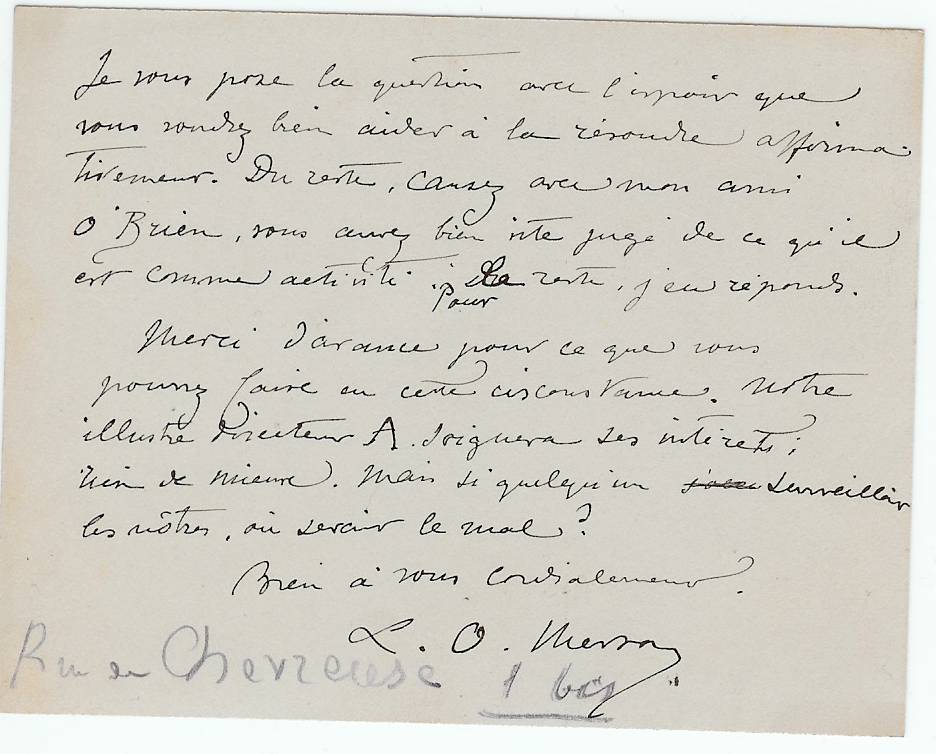 Je vous pose la question avec l'espoir que
vous voudrez bien aider à la résoudre affirma-
tivement. Du reste, causez avec mon ami
O'Brien, vous aurez bien vite jugé de ce qu'il
est comme activité ; pour le reste, j'en réponds.
Merci d'avance pour ce que vous
pourrez faire en cette circonstance. Notre
illustre directeur A. soignera ses intérêts ;
rien de mieux. Mais si quelqu'un surveillait
les nôtres, où serait le mal ?
Bien à vous cordialement.
L. O. Merson
Rue de Chevreuse 1